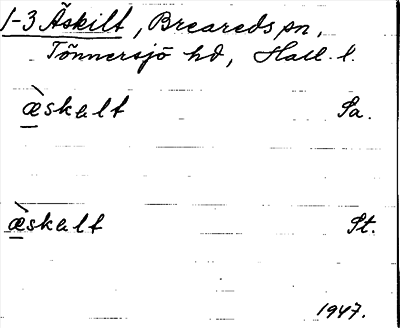 1-3 Äskilt, Breareds sn,
Tönnersjö hd, Hall. l.
æ̀skalt Sa.
æ̀skalt St.
1947.